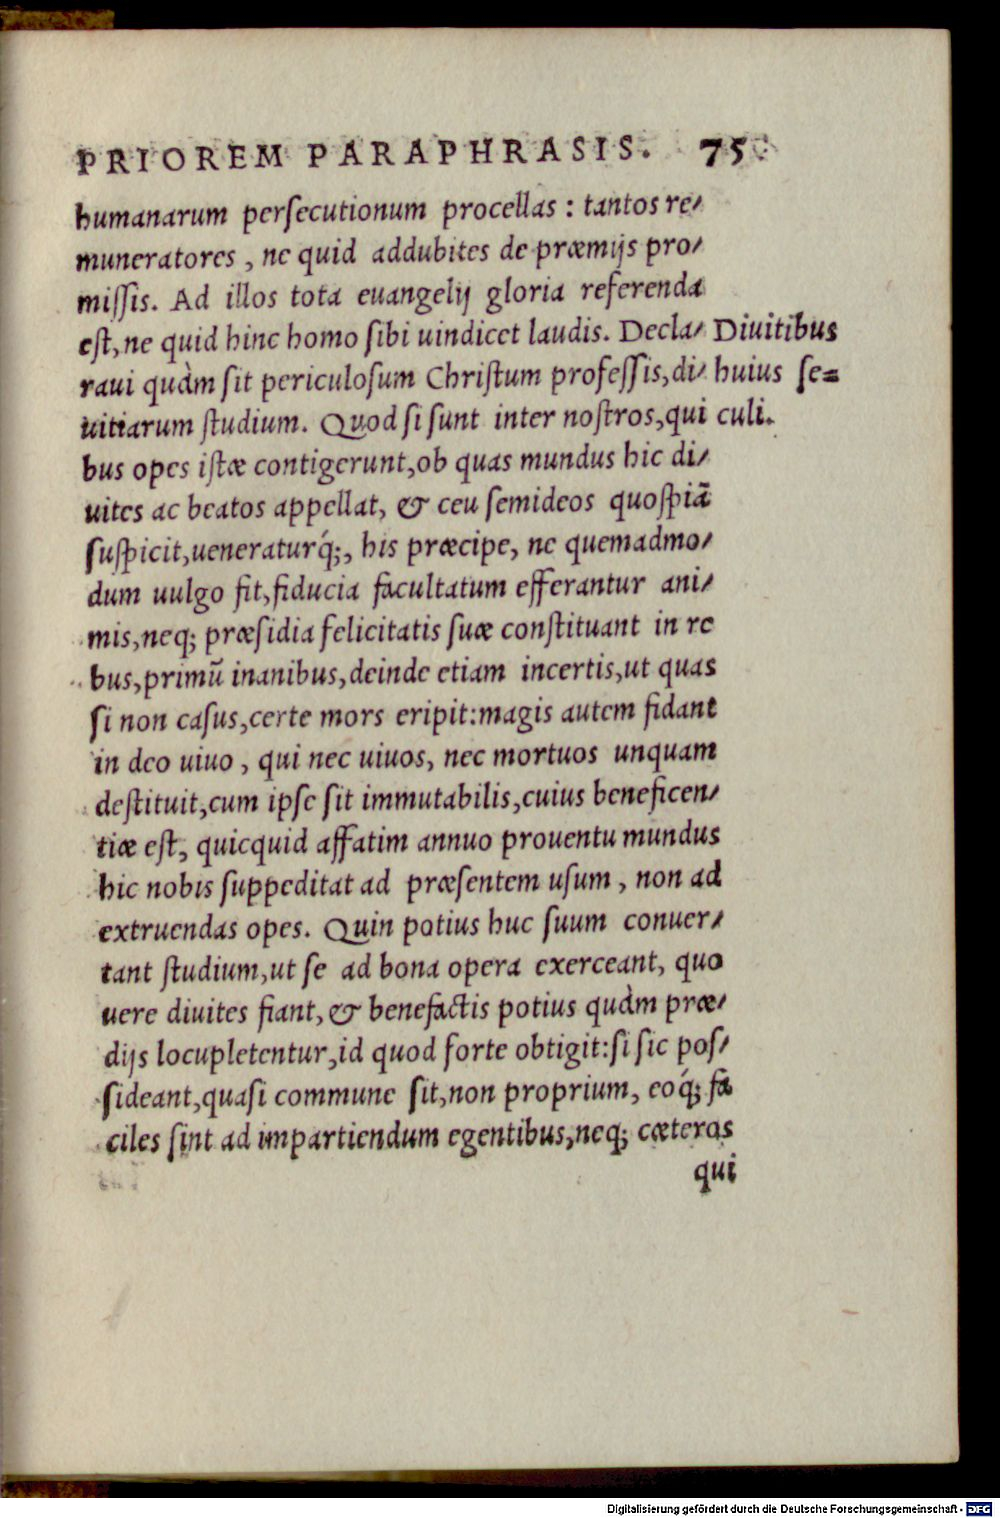 PRIOREM PARAPHRASIS. 75
humanarum persecutionum procellas : tantos re⸗
muneratores, ne quid addubites de præmijs pro⸗
missis. Ad illos tota euangelij gloria referenda
est, ne quid hinc homo sibi uindicet laudis. Decla⸗
raui quàm sit periculosum Christum professis, di⸗
uitiarum studium. Quod si sunt inter nostros, qui
bus opes istæ contigerunt, ob quas mundus hic di⸗
uites ac beatos appellat, & ceu semideos quospiā
suspicit, ueneraturq́;, his præcipe, ne quemadmo⸗
dum uulgo fit, fiducia facultatum efferantur ani⸗
mis, neq; præsidia felicitatis suæ constituant in re
bus, primū inanibus, deinde etiam incertis, ut quas
si non casus, certe mors eripit: magis autem fidant
in deo uiuo, qui nec uiuos, nec mortuos unquam
destituit, cum ipse sit immutabilis, cuius beneficen⸗
tiæ est, quicquid affatim annuo prouentu mundus
hic nobis suppeditat ad præsentem usum, non ad
extruendas opes. Quin potius huc suum conuer⸗
tant studium, ut se ad bona opera exerceant, quo
uere diuites fiant, & benefactis potius quàm præ⸗
dijs locupletentur, id quod forte obtigit: si sic pos⸗
sideant, quasi commune sit, non proprium, eoq́; fa
ciles sint ad impartiendum egentibus, neq; cæteros
qui
Diuitibus
huius se⸗
culi.
Digitalisierung gefördert durch die Deutsche Forschungsgemeinschaft - DFG